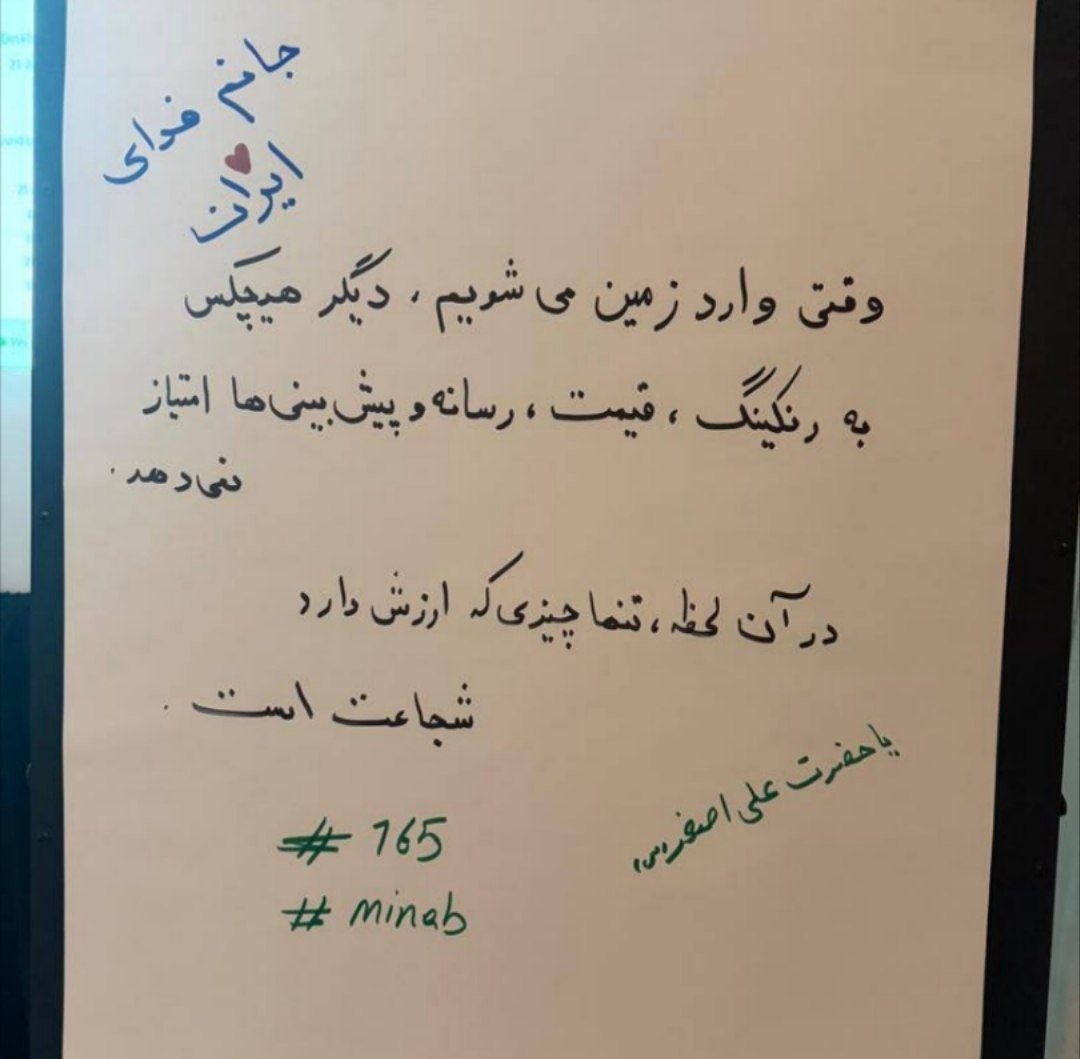 جانم فدای
ایران
وقتی وارد زمین می شویم، دیگر هیچکس
به رنکینگ، قیمت، رسانه و پیش بینی ها امتیاز
نمی دهد.
در آن لحظه، تنها چیزی که ارزش دارد
شجاعت است.
یا حضرت علی اصغر (س)
# 165
# minab